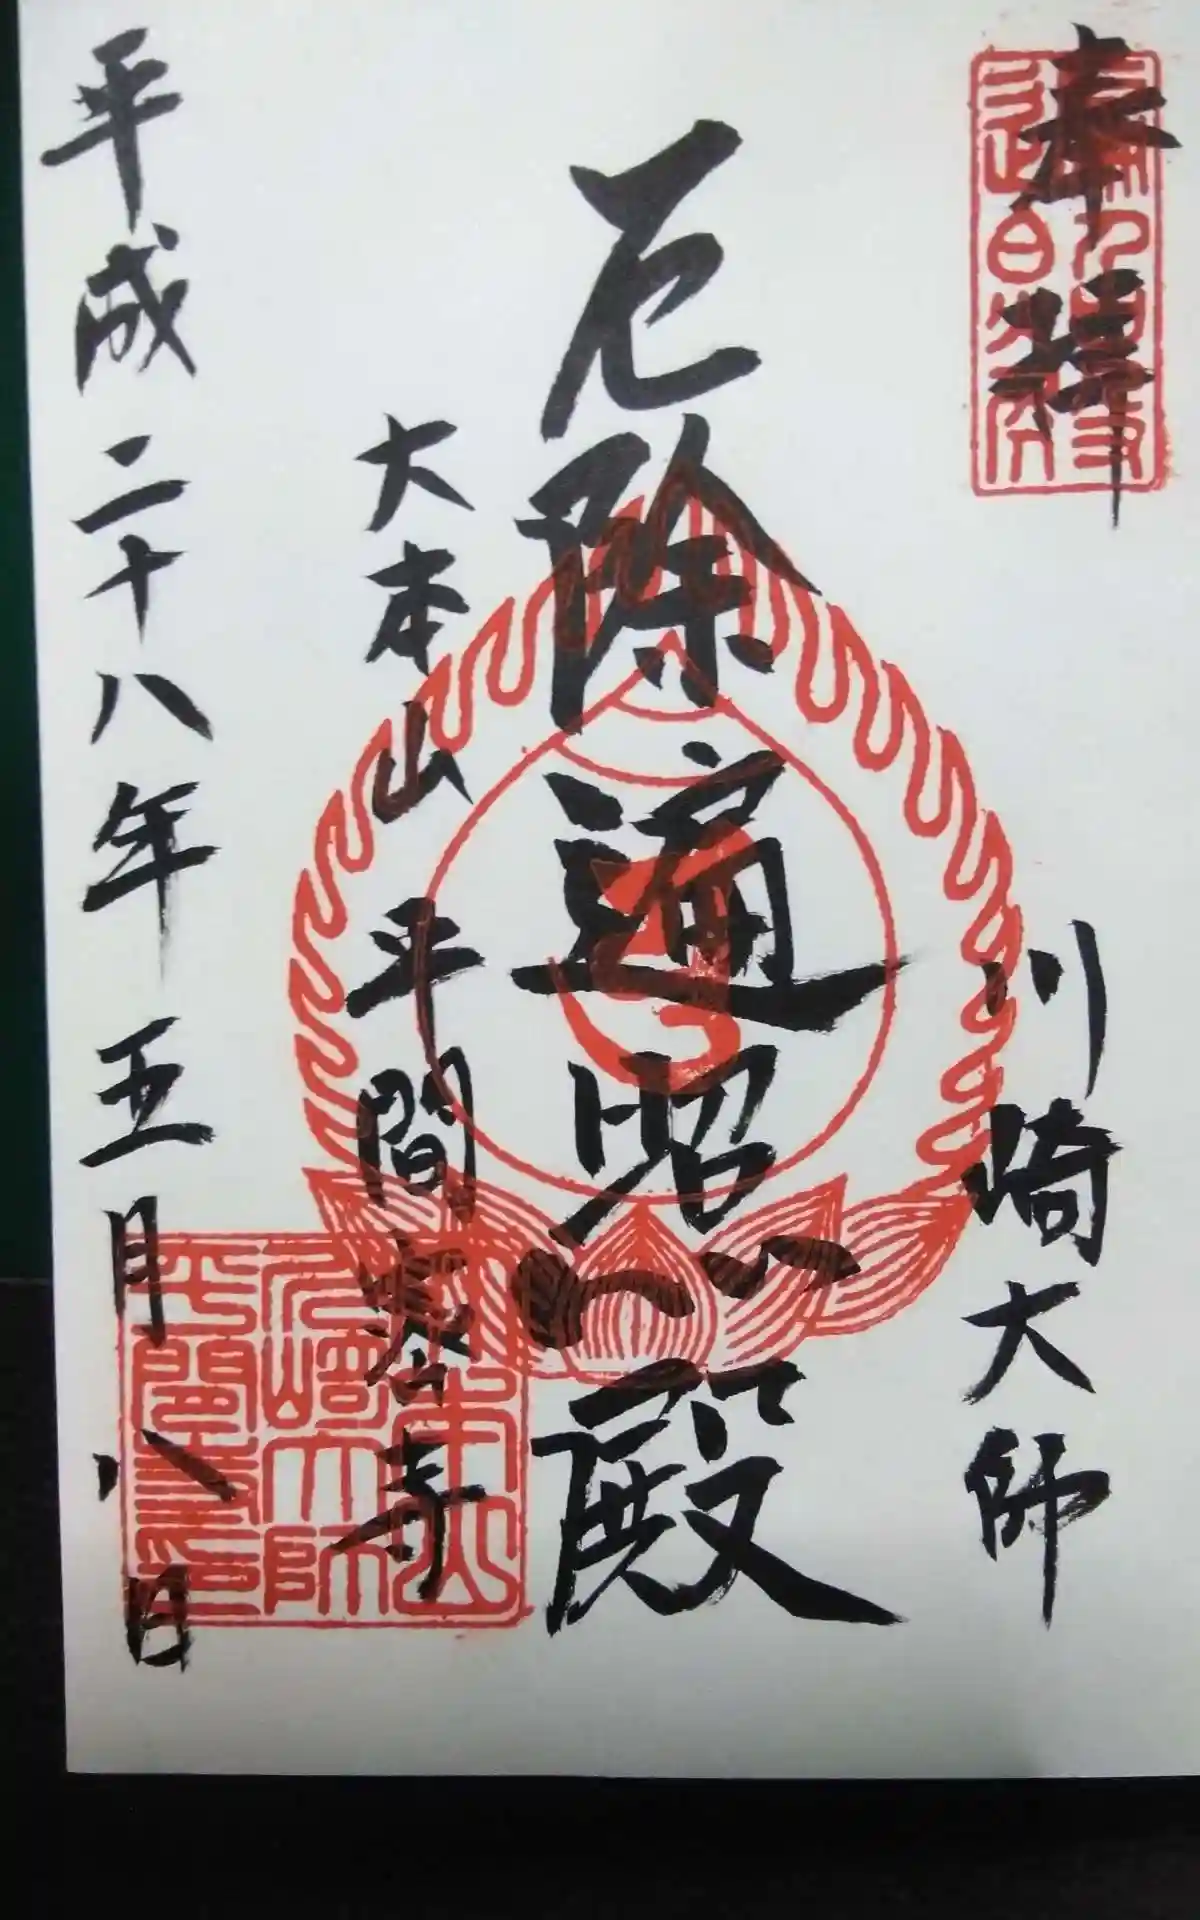 奉拝
川崎大師
厄除遍照殿
大本山 平間寺
平成二十八年 五月八日
大本山
川崎大師
平間寺印